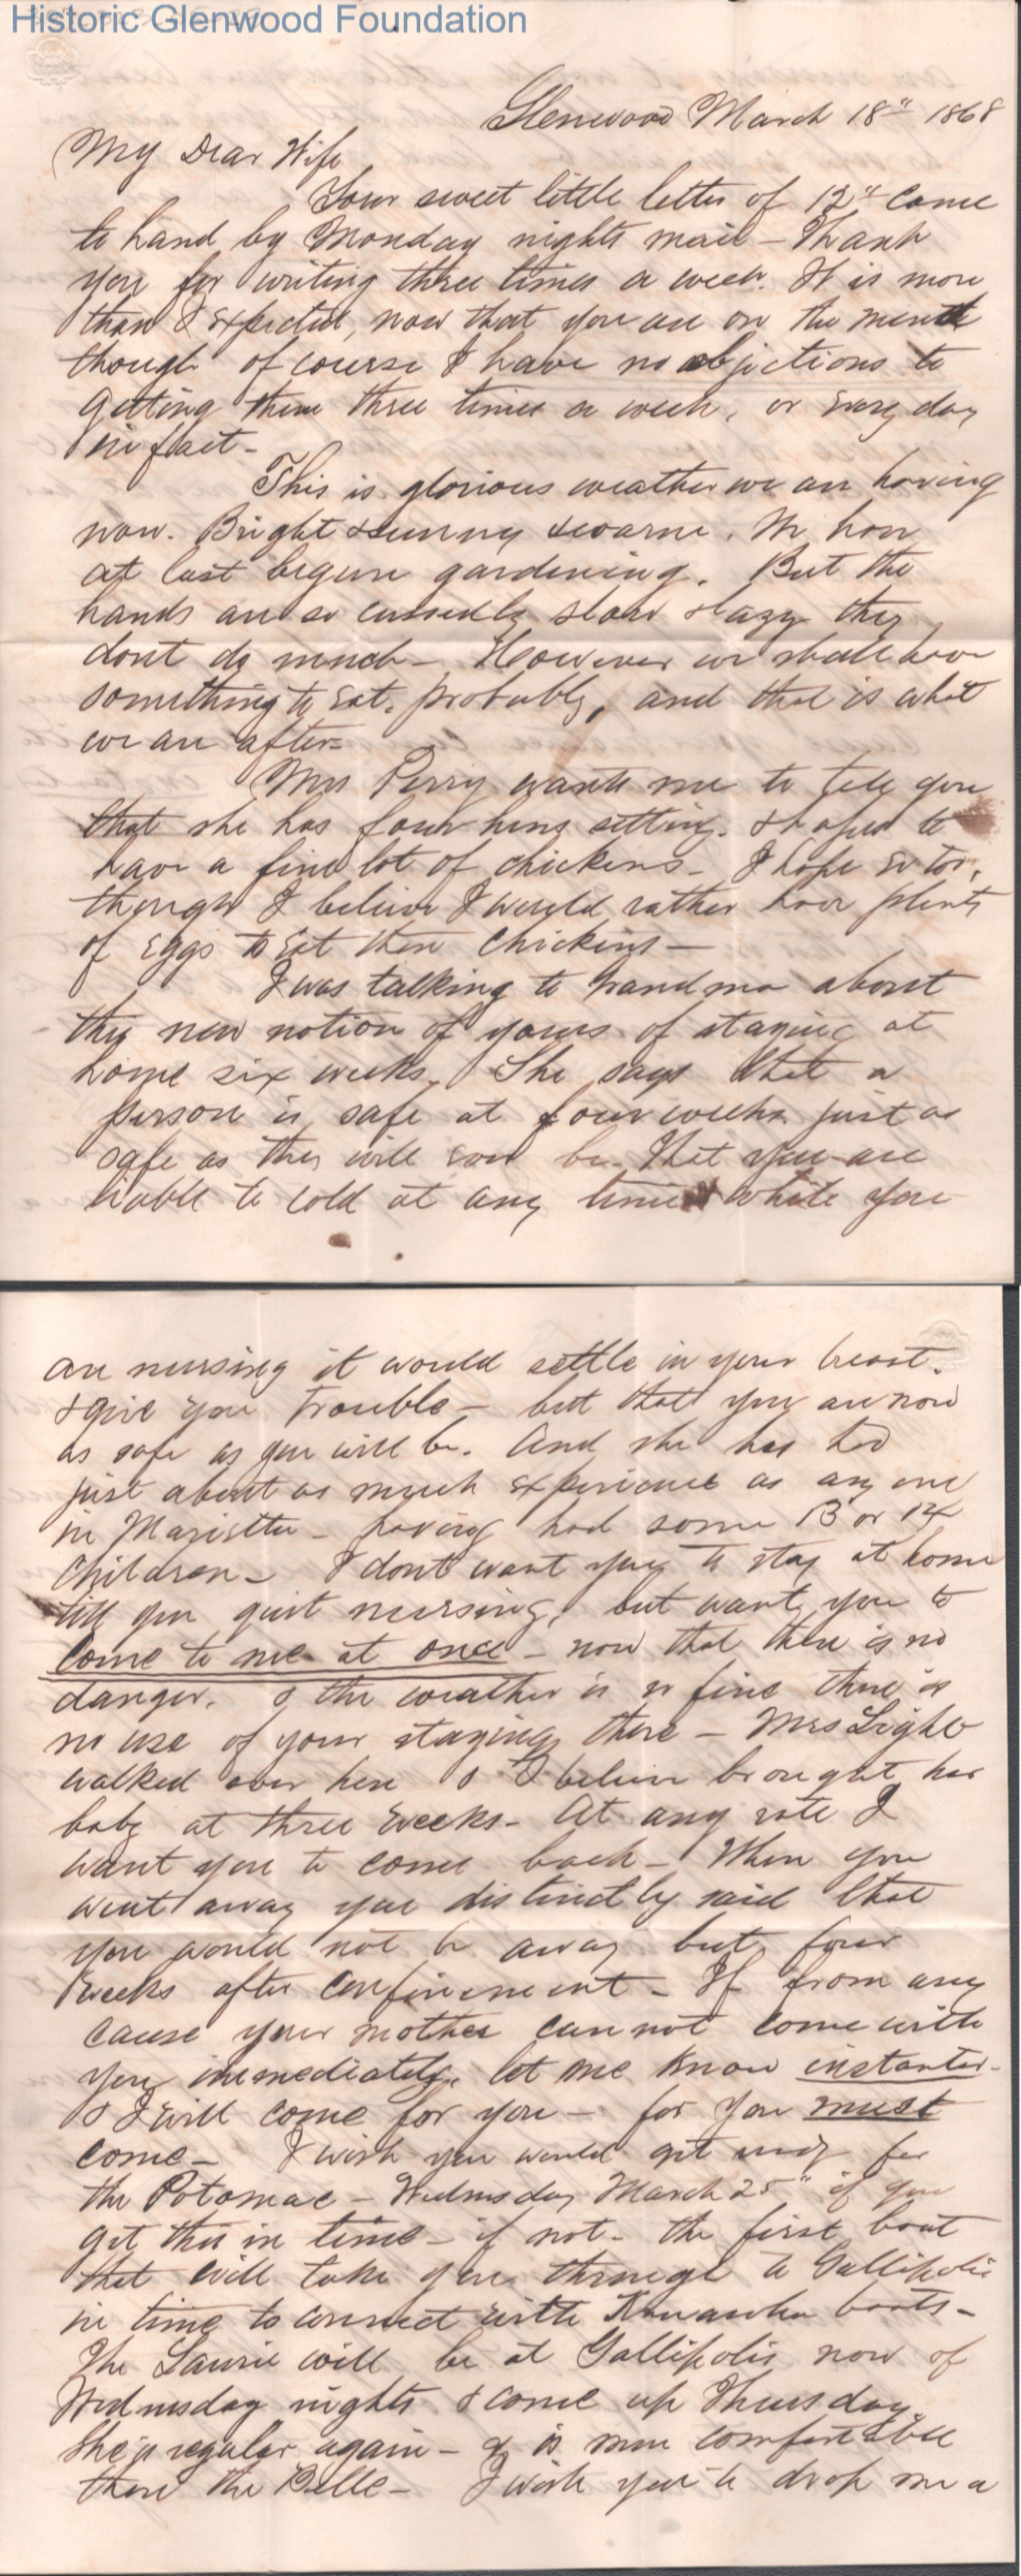 Historic Glenwood Foundation
Glenwood March 18" 1868
My Dear Wife
Your sweet little letter of 12" came
to hand by Monday nights mail - Thank
you for writing three times a week. It is more
than I expected, now that you are on the
though of course I have no objections to
getting them three times a week, or every day
in fact -
This is glorious weather we are having
now. Bright & sunny & warm. We have
at last begun gardening. But the
hands are so cussedly slow & lazy they
dont do much - However we shall have
something to eat, probably, and that is what
we are after -
Mrs Perry wants me to tell you
that she has four hens setting. & hopes to
have a fine lot of chickens - I hope so too,
though I believe I would rather have plenty
of eggs to eat than chickens -
I was talking to Grandma about
this new notion of yours of staying at
home six weeks. She says that a
person is safe at four weeks just as
safe as they will ever be. That you are
liable to cold at any time & while you
are nursing it would settle in your breast.
& give you trouble - but that you are now
as safe as you will be. And she has had
just about as much experience as any one
in Marietta - having had some 13 or 14
Children - I dont want you to stay at home
till you quit nursing, but want you to
come to me at once - now that there is no
danger. & the weather is so fine there is
no use of your staying there - Mrs Light
walked over here & I believe brought her
baby at three weeks - At any rate I
want you to come back - When you
went away you distinctly said that
you would not be away but four
weeks after confinement - If from any
cause your mother cannot come with
you immediately, let me know instanter -
& I will come for you - for you must
come - I wish you would get ready for
the Potomac - Wednesday March 25" if you
get this in time - if not - the first boat
that will take you through to Gallipolis
in time to connect with Kanawha boats -
The Laurie will be at Gallipolis now of
Wednesday nights & come up Thursday.
She is regular again - & is more comfortable
than the Belle - I wish you to drop me a